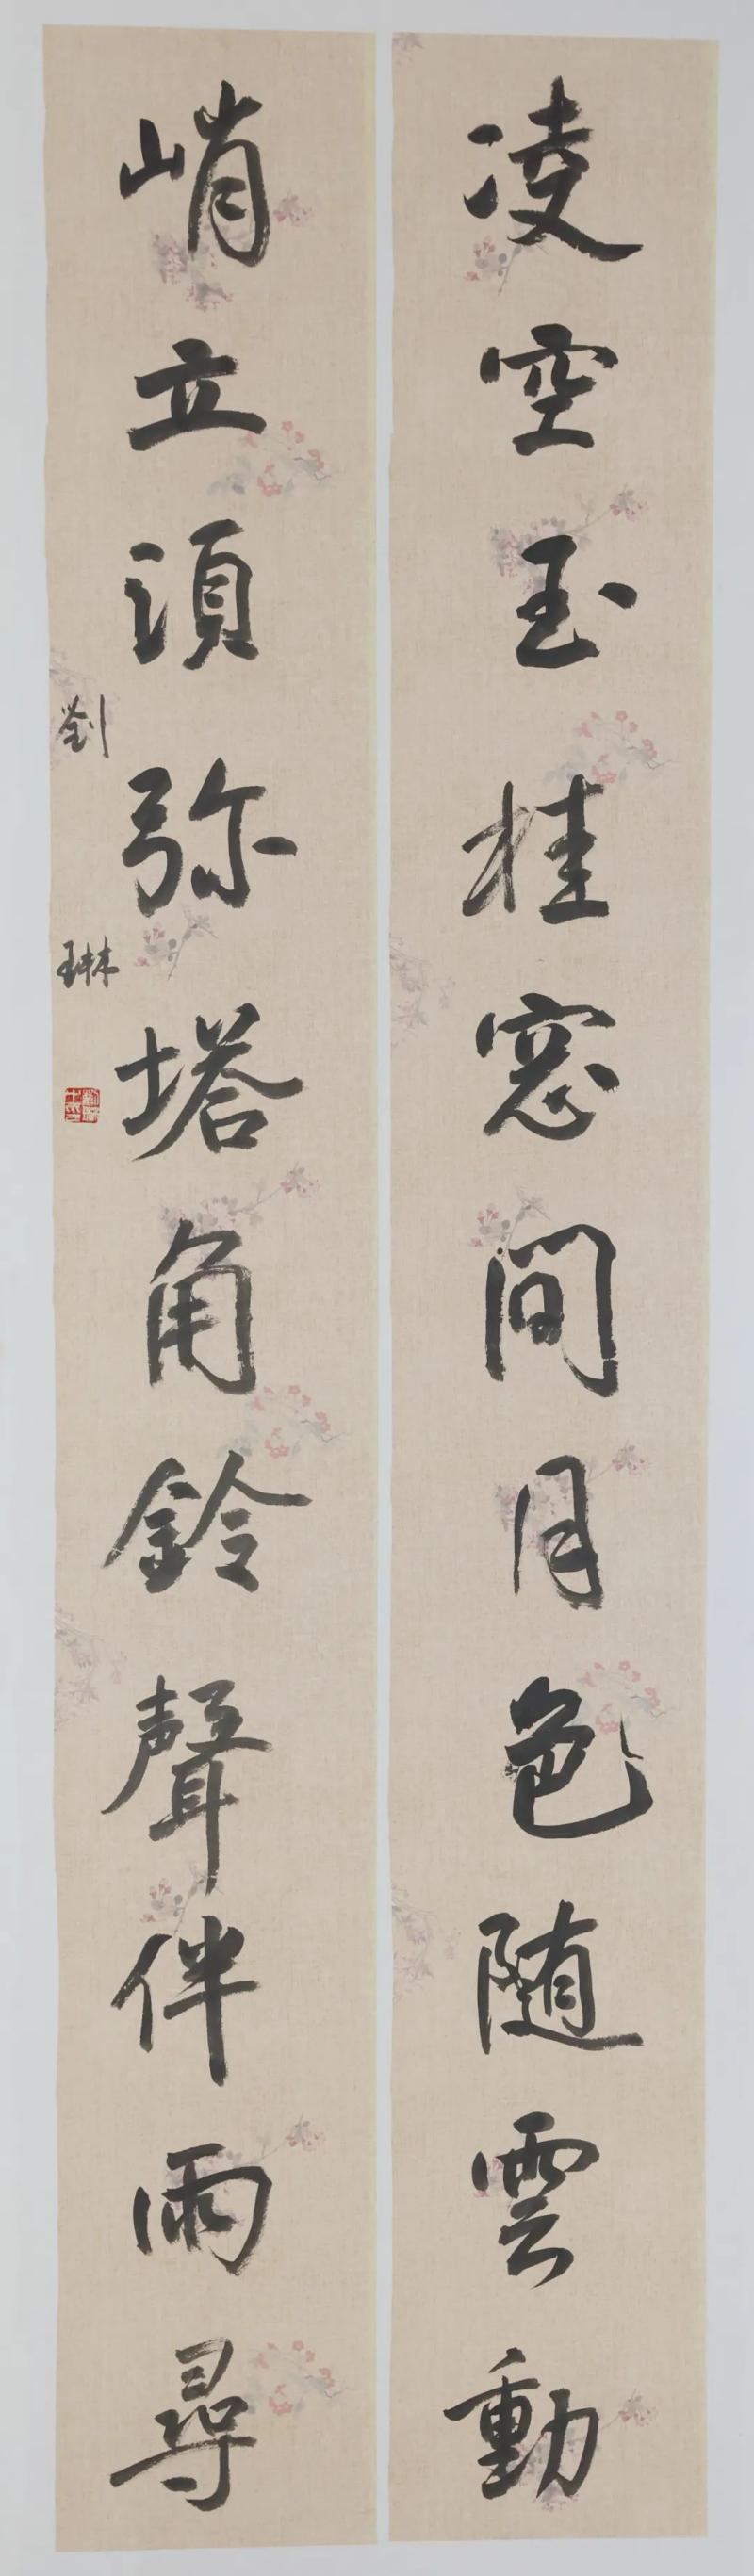 凌空玉桂窓間月色随雲動
峭立須弥塔角鈴聲伴雨尋
劉琳